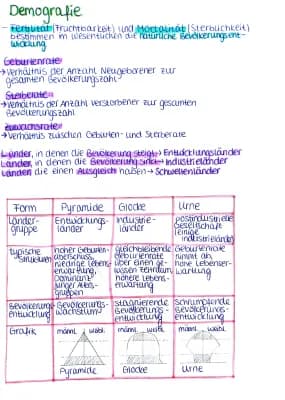 Demografie
- Fertilität (Fruchtbarkeit) und Mortalität (Sterblichkeit)
bestimmen im wesentlichen die natürliche Bevölkerungsent-
wicklung
Geburtenrate
→ Verhältnis der Anzahl Neugeborener zur
gesamten Bevölkerungszahl
Sterberate
→ Verhältnis der Anzahl verstorbener zur gesamten
Bevölkerungszahl
Zuwachsrate
→ Verhältnis zwischen Geburten- und Sterberate
Länder, in denen die Bevölkerung steigt → Entwicklungsländer
Länder, in denen die Bevölkerung sinkt → Industrieländer
Länder die einen Ausgleich haben → Schwellenländer
Form Pyramide Glocke Urne
Länder-
gruppe
Entwicklungs-
länder
Industrie-
länder
postindustrielle
Gesellschaft
(einige
Industrieländer)
typische
Strukturen
hoher Geburten-
überschuss,
niedrige Lebens-
erwartung,
Dominanz
junger Alters-
gruppen
gleichbleibende
Geburtenrate
über einen ge-
wissen Zeitraum,
höhere Lebens-
erwartung
Geburtenrate
nimmt ab,
hohe Lebenser-
wartung
Bevölkerungs-
entwicklung
Bevölkerungs-
wachstum
stagnierende
Bevölkerungs-
entwicklung
Schrumpfende
Bevölkerungs-
entwicklung
Grafik
männl. weibl.
Pyramide
männl. weibl.
Glocke
männl. weibl.
Urne